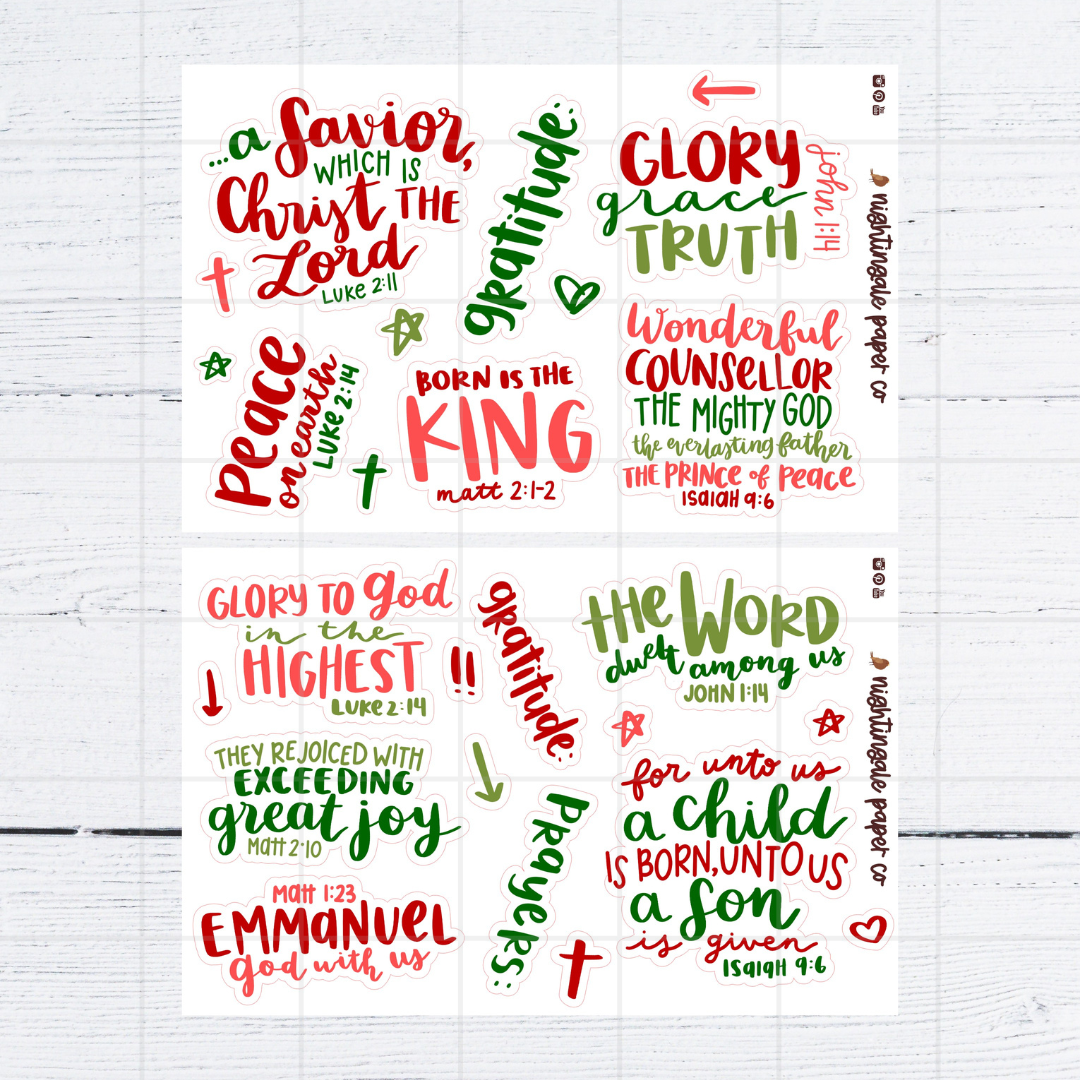 ...a Savior,
WHICH IS
Christ THE
Lord
Luke 2:11
gratitude:
GLORY
grace
TRUTH
john 1:14
Peace
on earth
Luke 2:14
BORN IS THE
KING
matt 2:1-2
Wonderful
COUNSELLOR
THE MIGHTY GOD
the everlasting father
THE PRINCE of Peace
ISAIAH 9:6
nightingale paper co
GLORY TO God
in the
HIGHEST
Luke 2:14
gratitude:
THE WORD
dwelt among us
JOHN 1:14
THEY REJOICED WITH
EXCEEDING
great joy
Matt 2:10
prayers:
for unto us
a child
IS BORN, UNTO US
a son
is given
ISAIAH 9:6
Matt 1:23
EMMANUEL
God with us
nightingale paper co